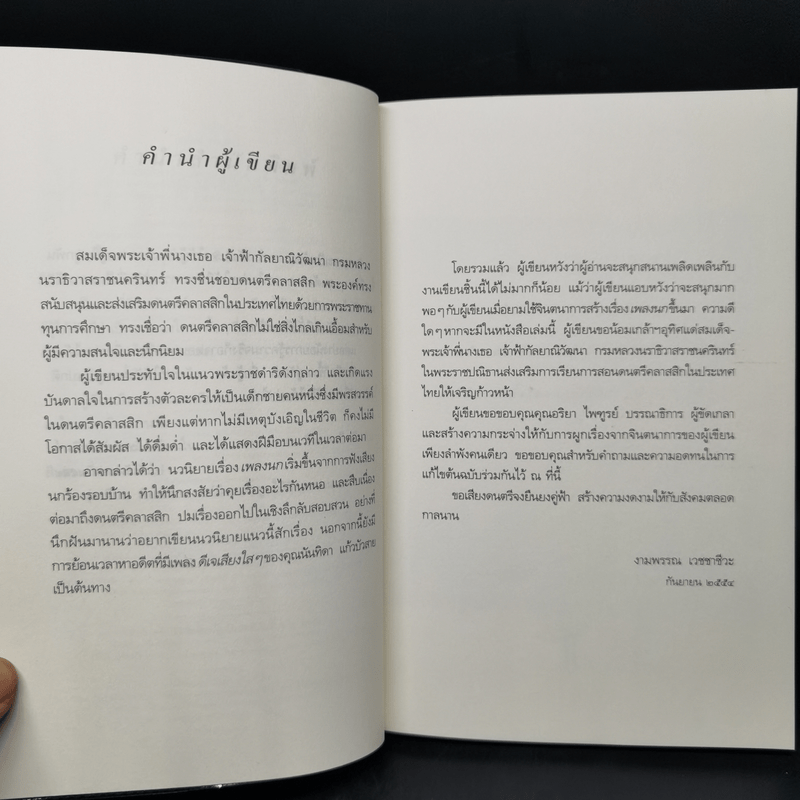 คำนำผู้เขียน
สมเด็จพระเจ้าพี่นางเธอ เจ้าฟ้ากัลยาณิวัฒนา กรมหลวง
นราธิวาสราชนครินทร์ ทรงชื่นชอบดนตรีคลาสสิก พระองค์ทรง
สนับสนุนและส่งเสริมดนตรีคลาสสิกในประเทศไทยด้วยการพระราชทาน
ทุนการศึกษา ทรงเชื่อว่า ดนตรีคลาสสิกไม่ใช่สิ่งไกลเกินเอื้อมสำหรับ
ผู้มีความสนใจและนึกนิยม
ผู้เขียนประทับใจในแนวพระราชดำริดังกล่าว และเกิดแรง
บันดาลใจในการสร้างตัวละครให้เป็นเด็กชายคนหนึ่งซึ่งมีพรสวรรค์
ในดนตรีคลาสสิก เพียงแต่หากไม่มีเหตุบังเอิญในชีวิต ก็คงไม่มี
โอกาสได้สัมผัส ได้ดื่มด่ำ และได้แสดงฝีมือบนเวทีในเวลาต่อมา
อาจกล่าวได้ว่า นวนิยายเรื่อง เพลงนก เริ่มขึ้นจากการฟังเสียง
นกร้องรอบบ้าน ทำให้นึกสงสัยว่าคุยเรื่องอะไรกันหนอ และสืบเนื่อง
ต่อมาถึงดนตรีคลาสสิก ปมเรื่องออกไปในเชิงลึกลับสอบสวน อย่างที่
นึกฝันมานานว่าอยากเขียนนวนิยายแนวนี้สักเรื่อง นอกจากนี้ยังมี
การย้อนเวลาหาอดีตที่มีเพลง ดีเจเสียงใสๆ ของคุณนันทิดา แก้วบัวสาย
เป็นต้นทาง
โดยรวมแล้ว ผู้เขียนหวังว่าผู้อ่านจะสนุกสนานเพลิดเพลินกับ
งานเขียนชิ้นนี้ได้ไม่มากก็น้อย แม้ว่าผู้เขียนแอบหวังว่าจะสนุกมาก
พอๆ กับผู้เขียนเมื่อยามใช้จินตนาการสร้างเรื่อง เพลงนก ขึ้นมา ความดี
ใดๆ หากจะมีในหนังสือเล่มนี้ ผู้เขียนขอน้อมเกล้าฯ อุทิศแด่สมเด็จ-
พระเจ้าพี่นางเธอ เจ้าฟ้ากัลยาณิวัฒนา กรมหลวงนราธิวาสราชนครินทร์
ในพระราชปณิธานส่งเสริมการเรียนการสอนดนตรีคลาสสิกในประเทศ
ไทยให้เจริญก้าวหน้า
ผู้เขียนขอขอบคุณคุณอริยา ไพฑูรย์ บรรณาธิการ ผู้ขัดเกลา
และสร้างความกระจ่างให้กับการผูกเรื่องจากจินตนาการของผู้เขียน
เพียงลำพังคนเดียว ขอขอบคุณสำหรับคำถามและความอดทนในการ
แก้ไขต้นฉบับร่วมกันไว้ ณ ที่นี้
ขอเสียงดนตรีจงยืนยงคู่ฟ้า สร้างความงดงามให้กับสังคมตลอด
กาลนาน
งามพรรณ เวชชาชีวะ
กันยายน ๒๕๕๔